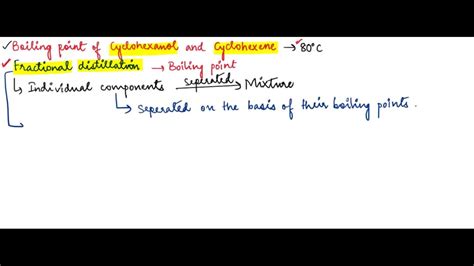 ✓Boiling point of Cyclohexanol and Cyclohexene → 80°C
✓ Fractional distillation → Boiling point
↳ Individual components seperated → Mixture
↳ Seperated on the basis of their boiling points.